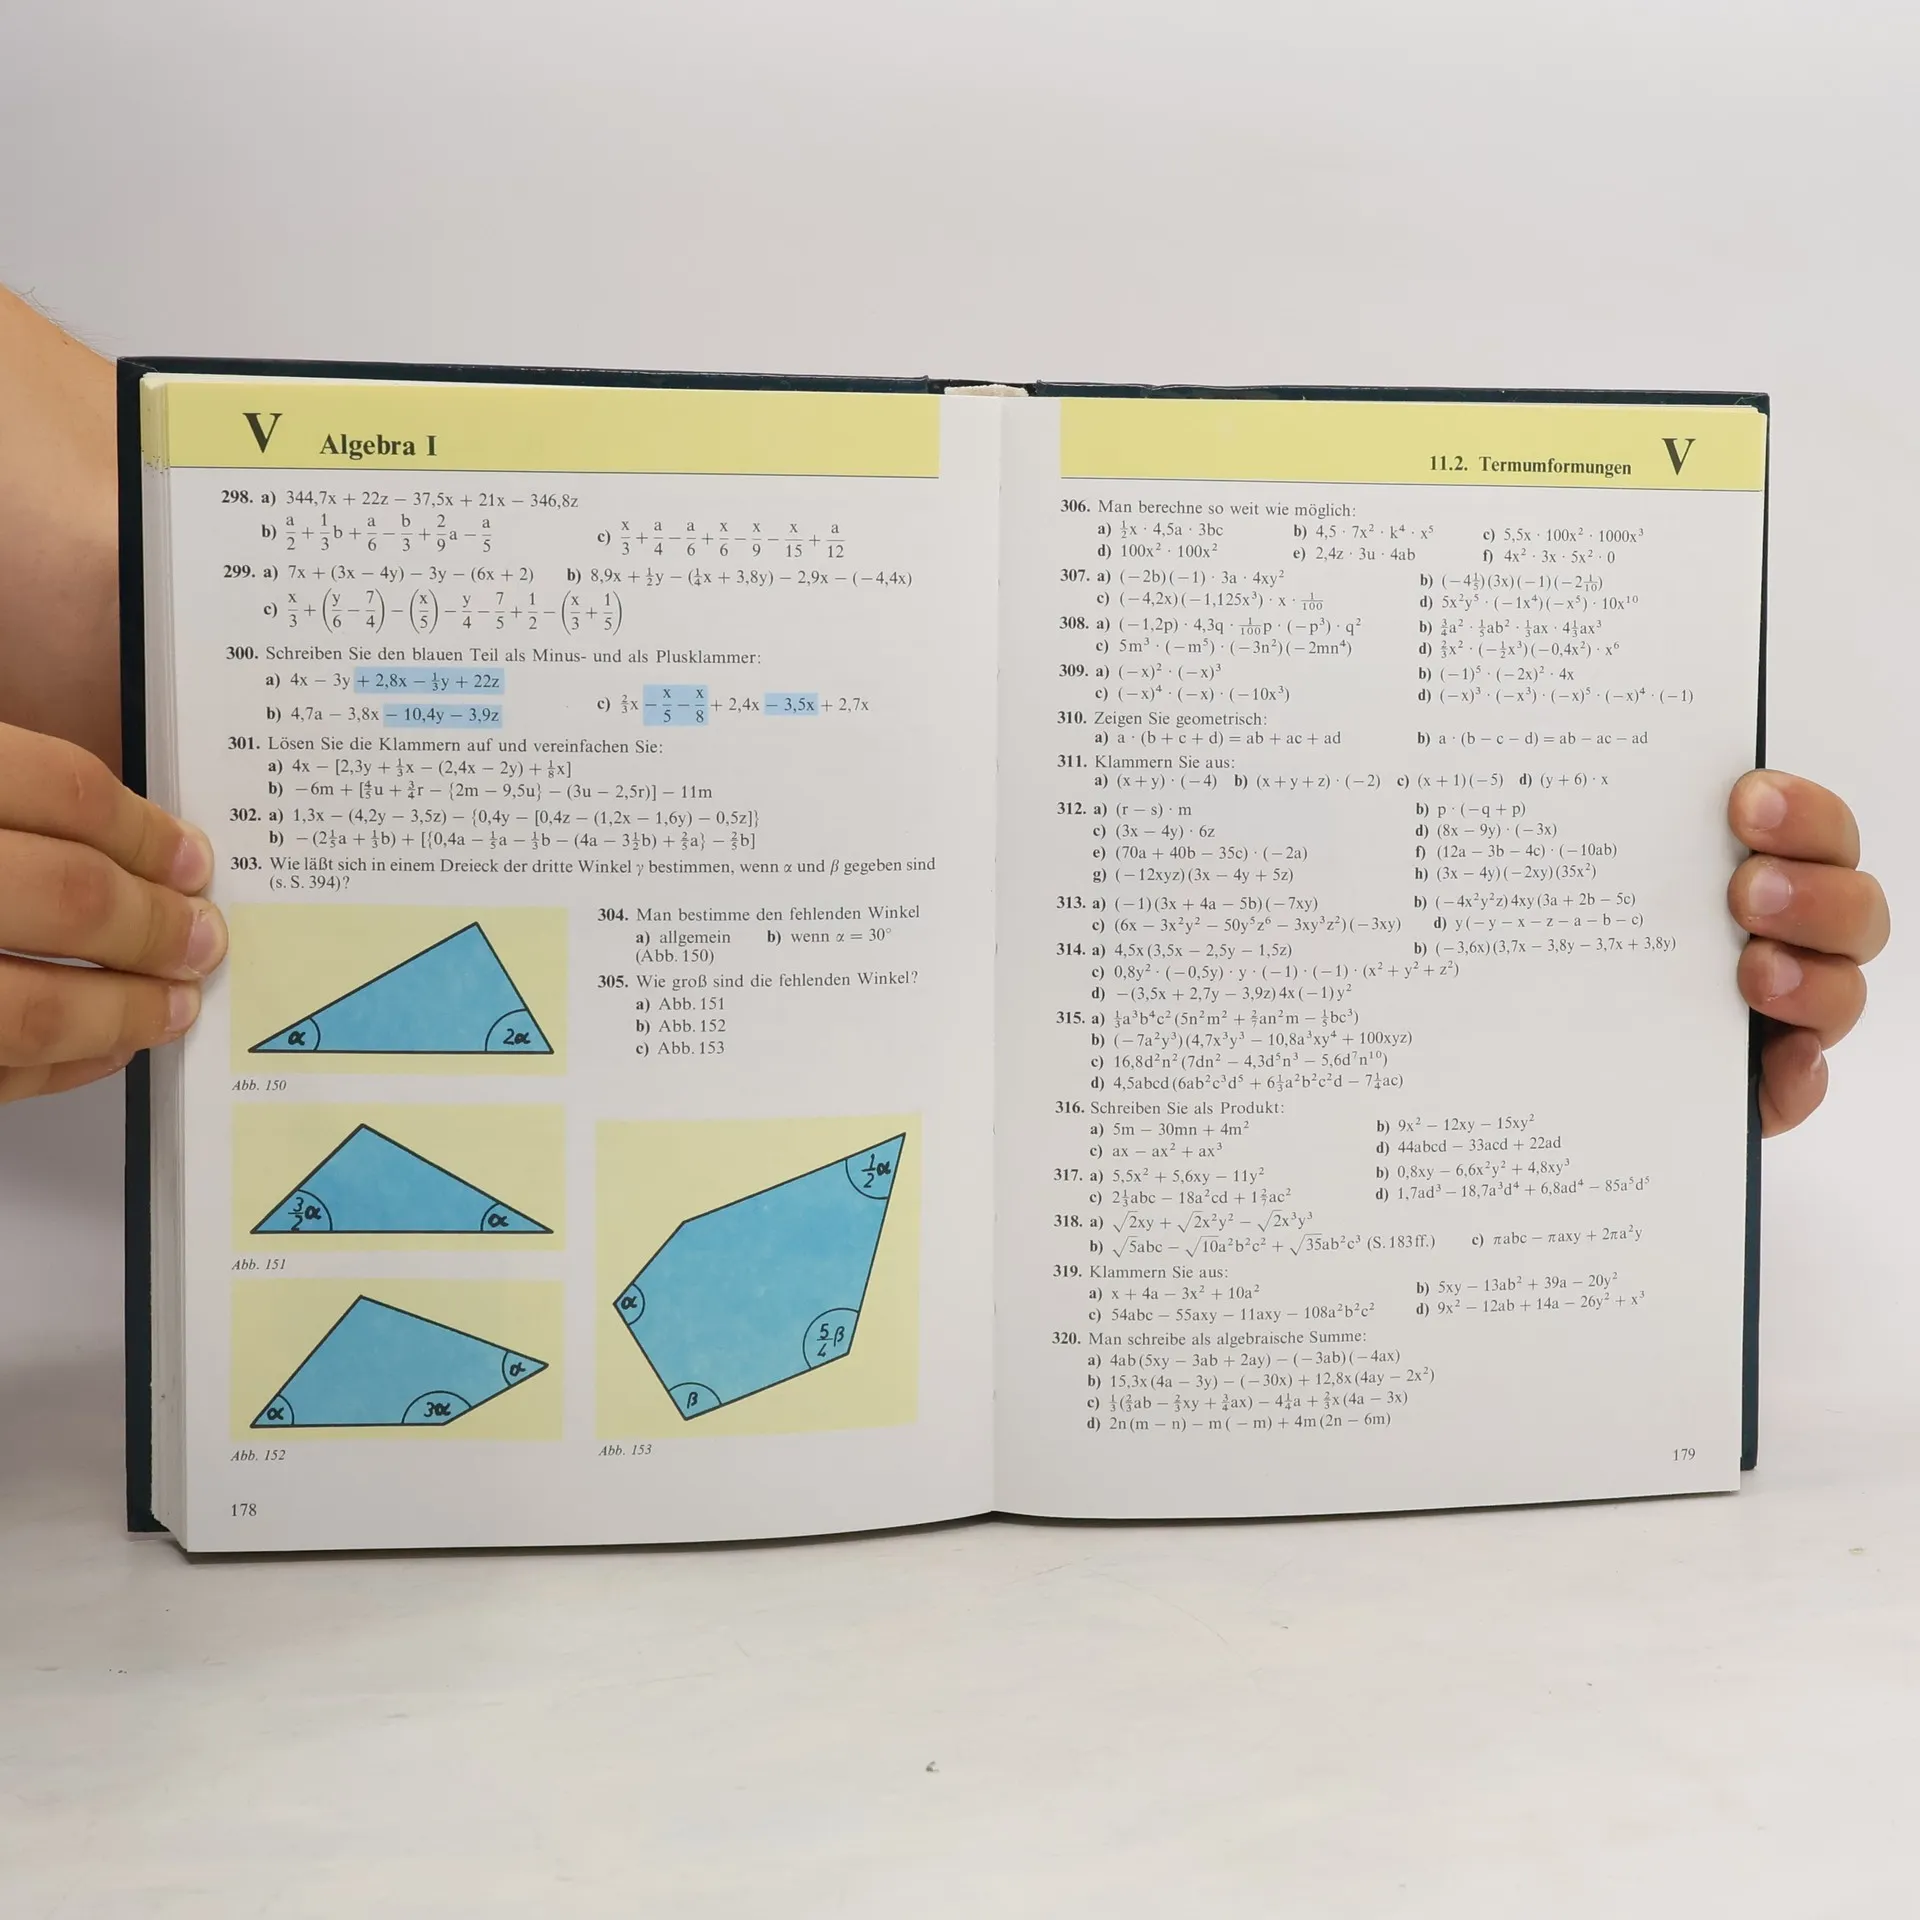 V Algebra I
298. a) 344,7x + 22z − 37,5x + 21x − 346,8z
b) a/2 + 1/3 b + a/6 − b/3 + 2/9 a − a/5 c) x/3 + a/4 − a/6 + x/6 − x/9 − x/15 + a/12
299. a) 7x + (3x − 4y) − 3y − (6x + 2) b) 8,9x + ½y − (¼x + 3,8y) − 2,9x − (−4,4x)
c) x/3 + (y/6 − 7/4) − (x/5) − y/4 − 7/5 + 1/2 − (x/3 + 1/5)
300. Schreiben Sie den blauen Teil als Minus- und als Plusklammer:
a) 4x − 3y + 2,8x − ⅓y + 22z
b) 4,7a − 3,8x − 10,4y − 3,9z c) ⅔x − x/5 − x/8 + 2,4x − 3,5x + 2,7x
301. Lösen Sie die Klammern auf und vereinfachen Sie:
a) 4x − [2,3y + ⅓x − (2,4x − 2y) + ⅛x]
b) −6m + [⅘u + ¾r − {2m − 9,5u} − (3u − 2,5r)] − 11m
302. a) 1,3x − (4,2y − 3,5z) − {0,4y − [0,4z − (1,2x − 1,6y) − 0,5z]}
b) −(2⅓a + ⅓b) + [{0,4a − ⅓a − ⅓b − (4a − 3½b) + ⅔a} − ⅖b]
303. Wie läßt sich in einem Dreieck der dritte Winkel γ bestimmen, wenn α und β gegeben sind
(s. S. 394)?
304. Man bestimme den fehlenden Winkel
a) allgemein b) wenn α = 30°
(Abb. 150)
305. Wie groß sind die fehlenden Winkel?
a) Abb. 151
b) Abb. 152
c) Abb. 153
α 2α
Abb. 150
3/2 α α
Abb. 151
α 3α α
Abb. 152
½α
α
5/4 β
β
Abb. 153
178
11.2. Termumformungen V
306. Man berechne so weit wie möglich:
a) ½x · 4,5a · 3bc b) 4,5 · 7x² · k⁴ · x⁵ c) 5,5x · 100x² · 1000x³
d) 100x² · 100x² e) 2,4z · 3u · 4ab f) 4x² · 3x · 5x² · 0
307. a) (−2b)(−1) · 3a · 4xy² b) (−4⅕)(3x)(−1)(−2 1/10)
c) (−4,2x)(−1,125x³) · x · 1/100 d) 5x²y⁵ · (−1x⁴)(−x⁵) · 10x¹⁰
308. a) (−1,2p) · 4,3q · 1/100 p · (−p³) · q² b) ¾a² · ⅓ab² · ⅓ax · 4⅓ax³
c) 5m³ · (−m⁵) · (−3n²)(−2mn⁴) d) ⅔x² · (−½x³)(−0,4x²) · x⁶
309. a) (−x)² · (−x)³ b) (−1)⁵ · (−2x)² · 4x
c) (−x)⁴ · (−x) · (−10x³) d) (−x)³ · (−x³) · (−x)⁵ · (−x)⁴ · (−1)
310. Zeigen Sie geometrisch:
a) a · (b + c + d) = ab + ac + ad b) a · (b − c − d) = ab − ac − ad
311. Klammern Sie aus:
a) (x + y) · (−4) b) (x + y + z) · (−2) c) (x + 1)(−5) d) (y + 6) · x
312. a) (r − s) · m b) p · (−q + p)
c) (3x − 4y) · 6z d) (8x − 9y) · (−3x)
e) (70a + 40b − 35c) · (−2a) f) (12a − 3b − 4c) · (−10ab)
g) (−12xyz)(3x − 4y + 5z) h) (3x − 4y)(−2xy)(35x²)
313. a) (−1)(3x + 4a − 5b)(−7xy) b) (−4x²y²z) 4xy (3a + 2b − 5c)
c) (6x − 3x²y² − 50y⁵z⁶ − 3xy³z²)(−3xy) d) y(−y − x − z − a − b − c)
314. a) 4,5x (3,5x − 2,5y − 1,5z) b) (−3,6x)(3,7x − 3,8y − 3,7x + 3,8y)
c) 0,8y² · (−0,5y) · y · (−1) · (−1) · (x² + y² + z²)
d) −(3,5x + 2,7y − 3,9z) 4x (−1) y²
315. a) ⅓a³b⁴c² (5n²m² + 2/7 an²m − ⅕bc³)
b) (−7a²y³)(4,7x³y³ − 10,8a³xy⁴ + 100xyz)
c) 16,8d²n² (7dn² − 4,3d⁵n³ − 5,6d⁷n¹⁰)
d) 4,5abcd (6ab²c³d⁵ + 6⅓a²b²c²d − 7¼ac)
316. Schreiben Sie als Produkt:
a) 5m − 30mn + 4m² b) 9x² − 12xy − 15xy²
c) ax − ax² + ax³ d) 44abcd − 33acd + 22ad
317. a) 5,5x² + 5,6xy − 11y² b) 0,8xy − 6,6x²y² + 4,8xy³
c) 2⅓abc − 18a²cd + 1 2/7 ac² d) 1,7ad³ − 18,7a³d⁴ + 6,8ad⁴ − 85a⁵d⁵
318. a) √2xy + √2x²y² − √2x³y³
b) √5abc − √10a²b²c² + √35ab²c³ (S. 183 ff.) c) πabc − πaxy + 2πa²y
319. Klammern Sie aus:
a) x + 4a − 3x² + 10a² b) 5xy − 13ab² + 39a − 20y²
c) 54abc − 55axy − 11axy − 108a²b²c² d) 9x² − 12ab + 14a − 26y² + x³
320. Man schreibe als algebraische Summe:
a) 4ab (5xy − 3ab + 2ay) − (−3ab)(−4ax)
b) 15,3x (4a − 3y) − (−30x) + 12,8x (4ay − 2x²)
c) ⅓(⅔ab − ⅔xy + ¾ax) − 4¼a + ⅔x (4a − 3x)
d) 2n (m − n) − m (−m) + 4m (2n − 6m)
179